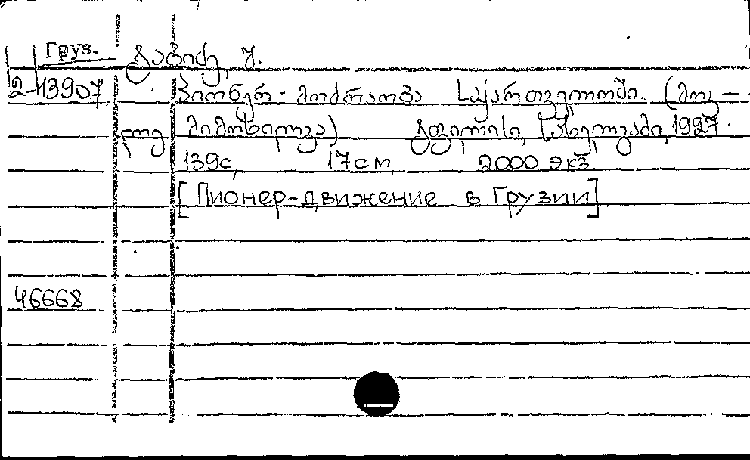 Груз.
2 13907 პიონერ-მოძრაობა საქართველოში. (მოკ-
ლე მიმოხილვა) ტფილისი, სახელგამი, 1927.
139с. 17см. 2000 экз
[Пионер-движение в Грузии]
46668